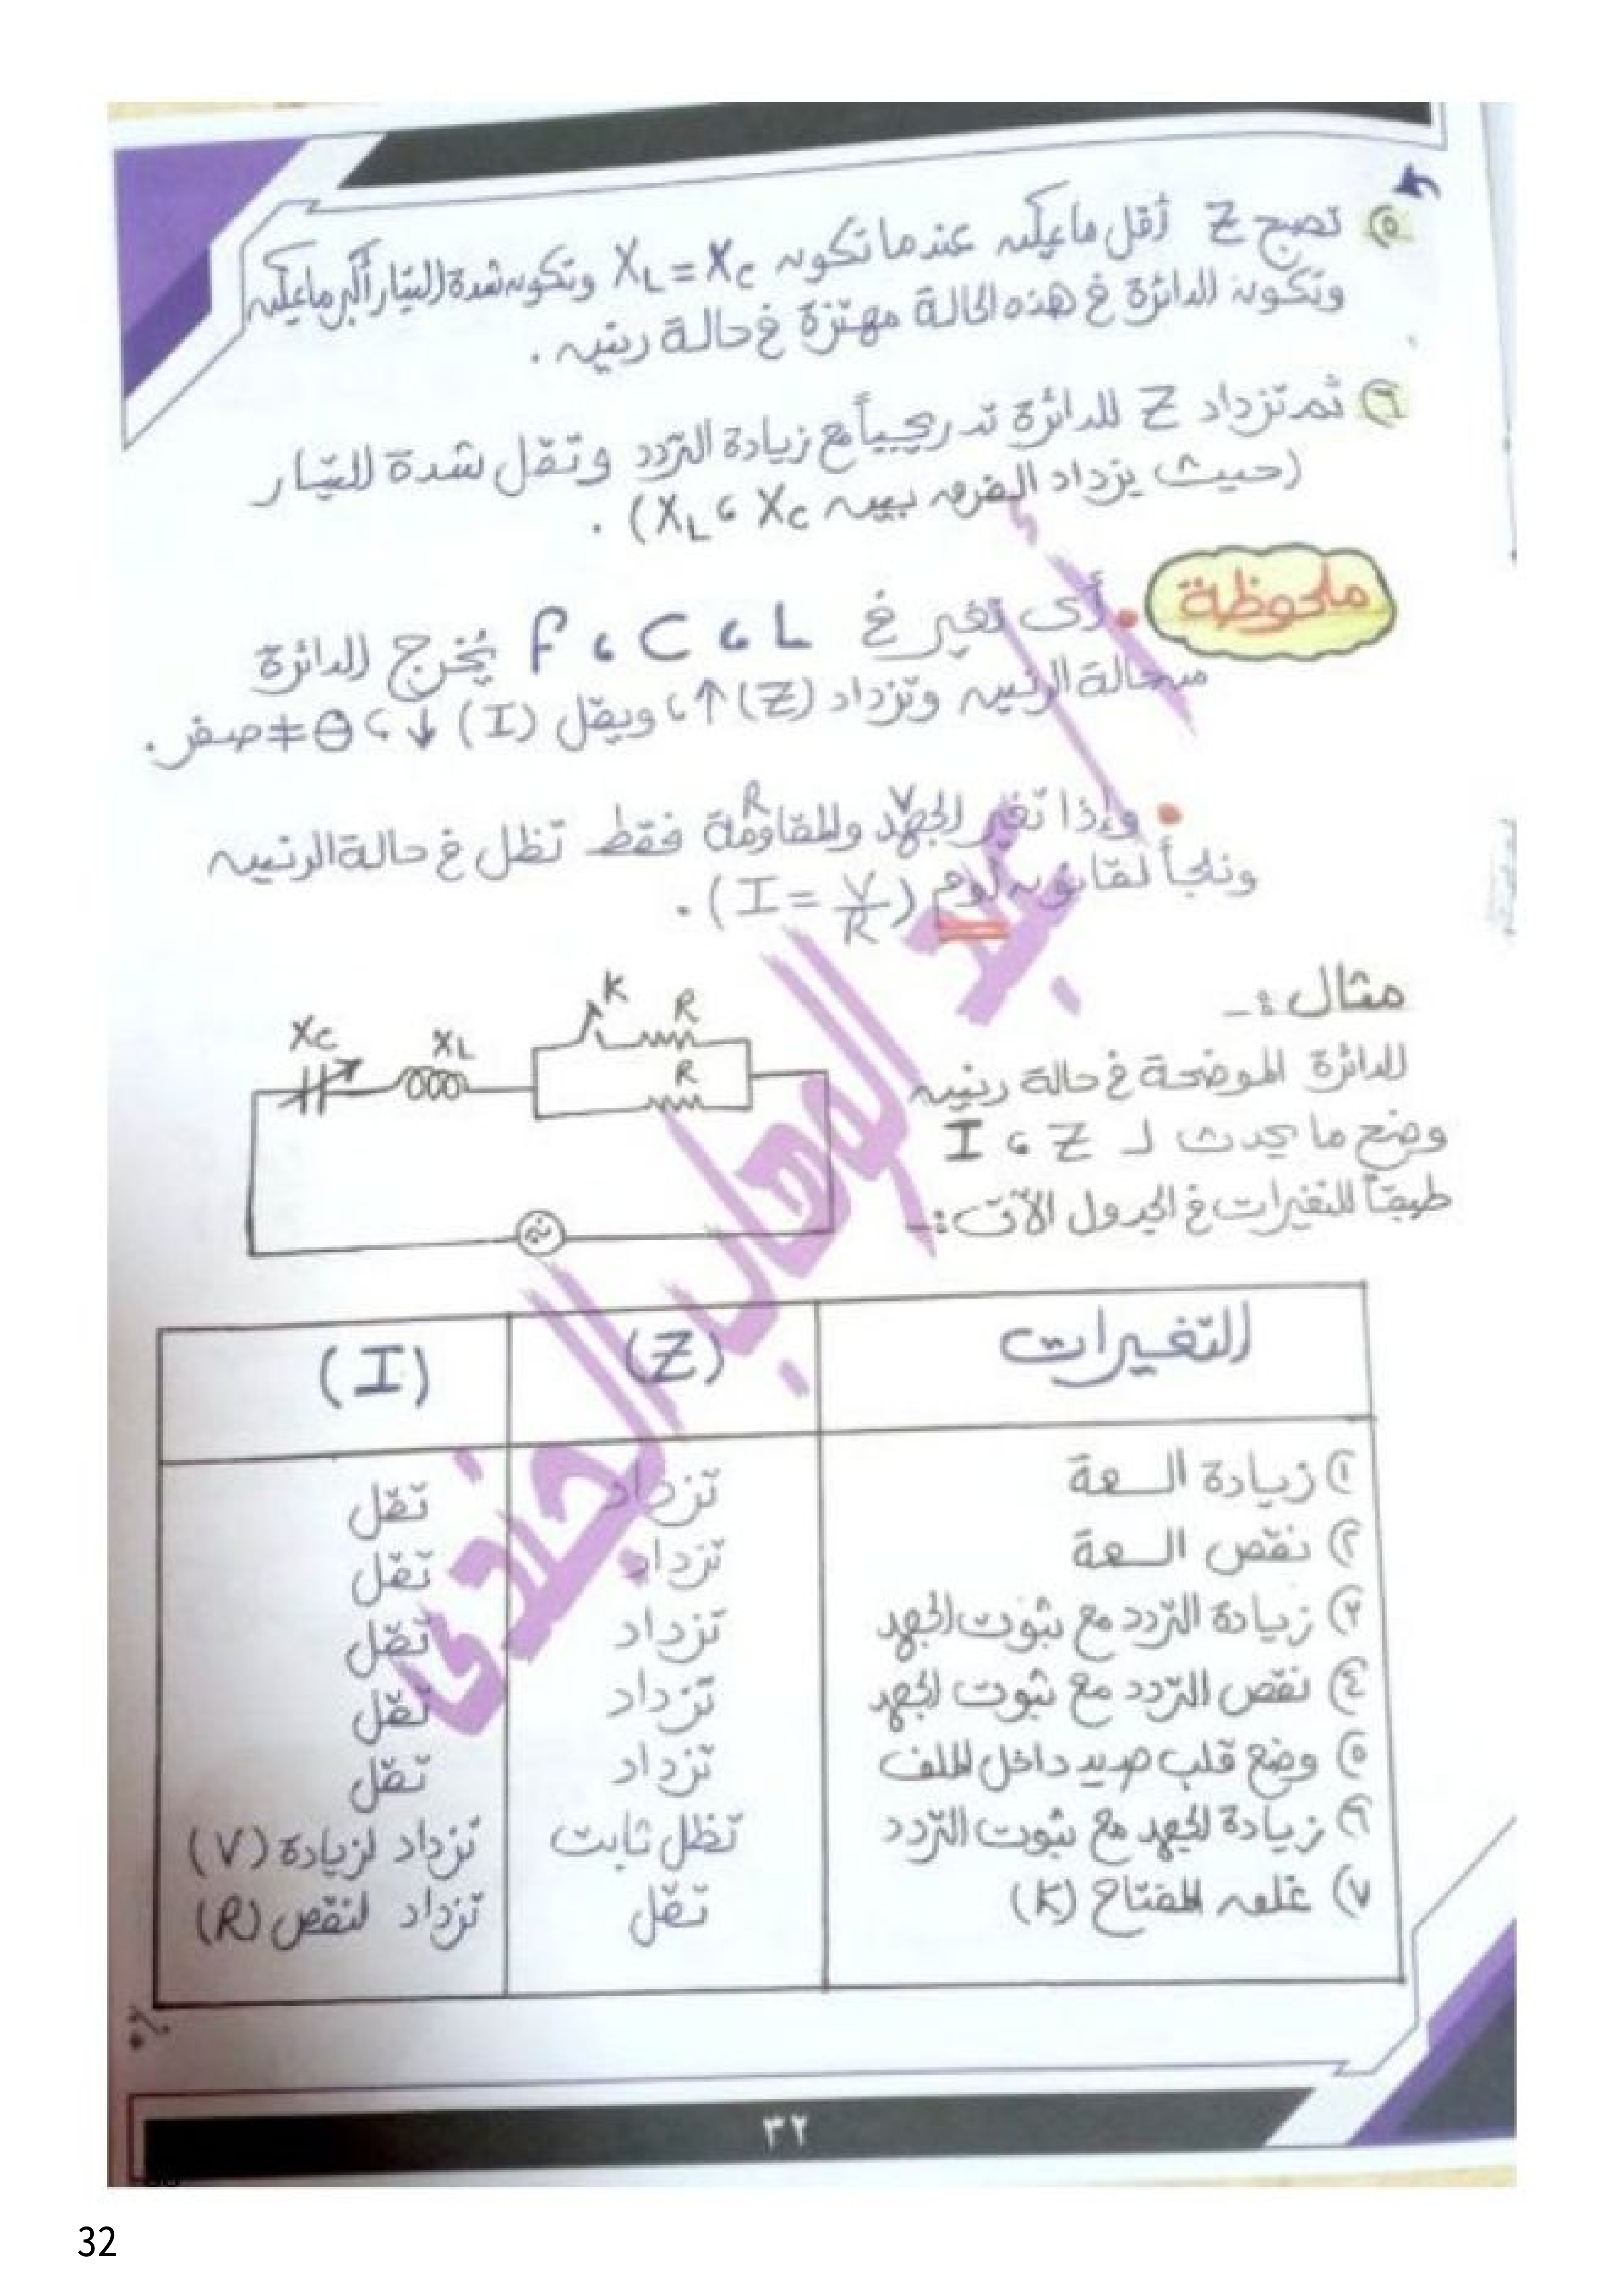 ٥ تصبح Z أقل ما يمكن عندما تكون X_L = X_C وتكون شدة التيار أكبر ما يمكن
وتكون الدائرة في هذه الحالة مهتزة في حالة رنين .
٦ ثم تزداد Z للدائرة تدريجياً مع زيادة التردد وتقل شدة التيار
(حيث يزداد الفرق بين X_L ، X_C) .
ملحوظة
• أى تغير في F ، C ، L يُخرج الدائرة
من حالة الرنين وتزداد (Z) ↑ ، ويقل (I) ↓ ، θ ≠ صفر .
• وإذا تغير الجهد V والمقاومة R فقط تظل في حالة الرنين
ونلجأ لقانون أوم (I = V/R) .
مثال :-
الدائرة الموضحة في حالة رنين
وضح ما يحدث لـ Z ، I
طبقاً للتغيرات في الجدول الآتى :-
K
R
X_C
X_L
R
التغيرات (Z) (I)
١) زيادة السعة تزداد تقل
٢) نقص السعة تزداد تقل
٣) زيادة التردد مع ثبوت الجهد تزداد تقل
٤) نقص التردد مع ثبوت الجهد تزداد تقل
٥) وضع قلب حديد داخل الملف تزداد تقل
٦) زيادة الجهد مع ثبوت التردد تظل ثابت تزداد لزيادة (V)
٧) غلق المفتاح (K) تقل تزداد لنقص (R)
أ / عبد الوهاب الجندى
٣٢
32